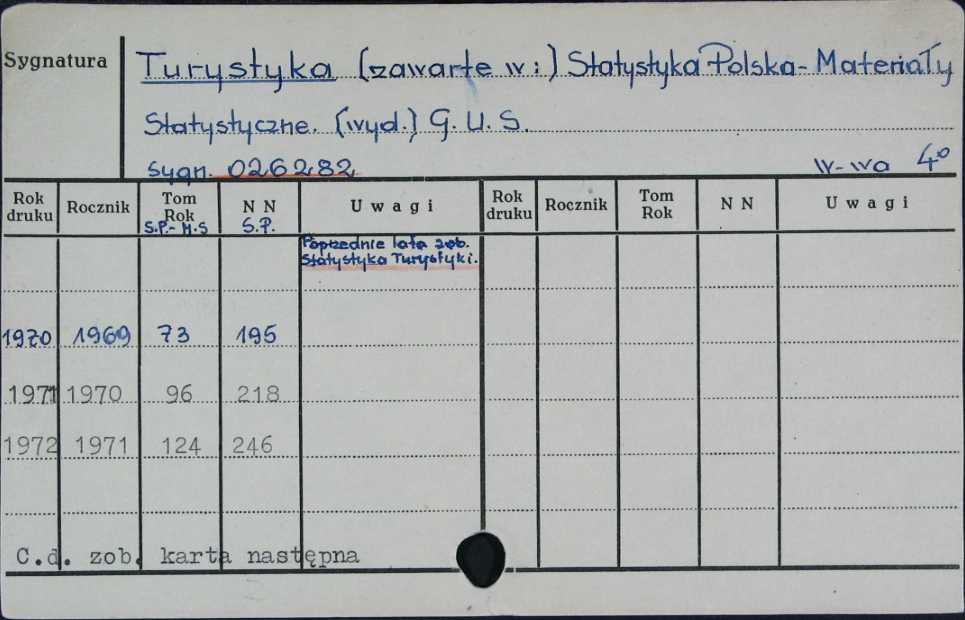 Sygnatura
Turystyka (zawarte w:) Statystyka Polska - Materiały
Statystyczne. (wyd.) G.U.S.
sygn. 026282 W-wa 4°
Rok druku Rocznik Tom Rok S.P.- M.S N N S.P. Uwagi Rok druku Rocznik Tom Rok N N Uwagi
Poprzednie lata zob.
Statystyka Turystyki.
1970 1969 73 195
1971 1970 96 218
1972 1971 124 246
C.d. zob. karta następna